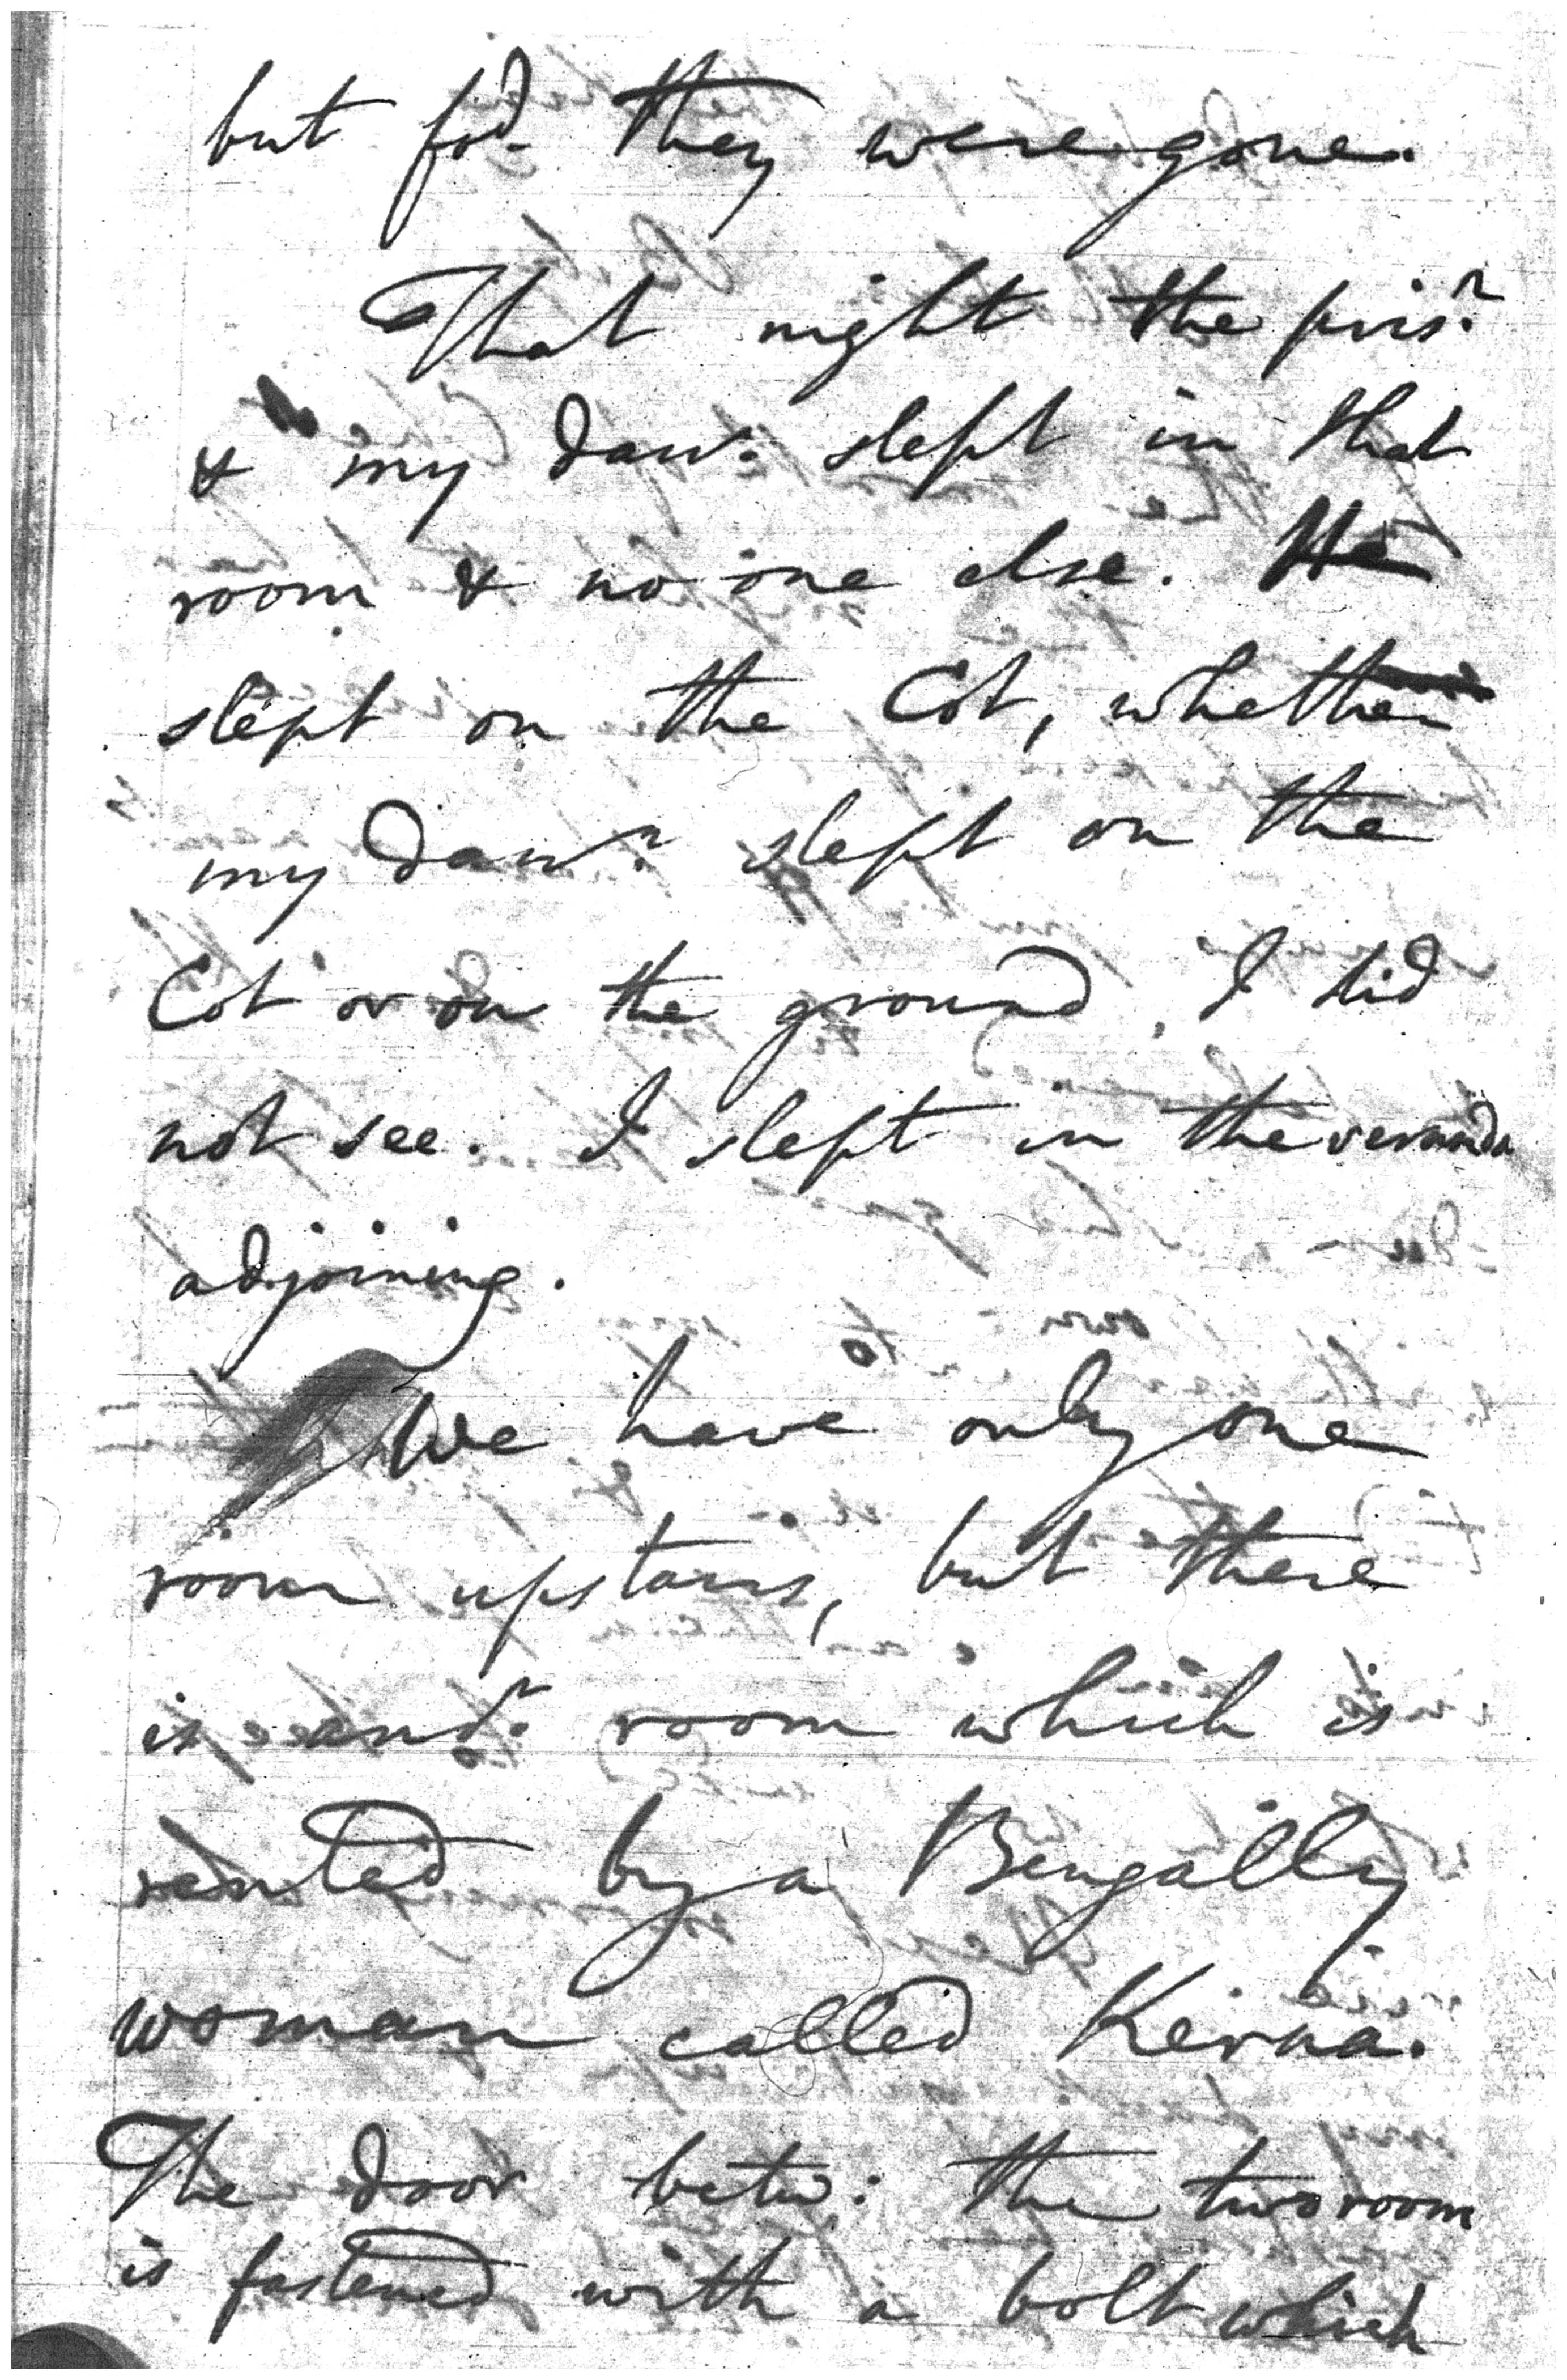 but fd. they were gone.
That night the prisr.
& my daur. slept in that
room & no one else. He
slept on the Cot, whether
my daur. slept on the
Cot or on the ground, I did
not see. I slept in the veranda
adjoining.
We have only one
room upstairs, but there
is anor. room which is
rented by a Bengally
woman called Kerna.
The door betw: the two room
is fastened with a bolt which